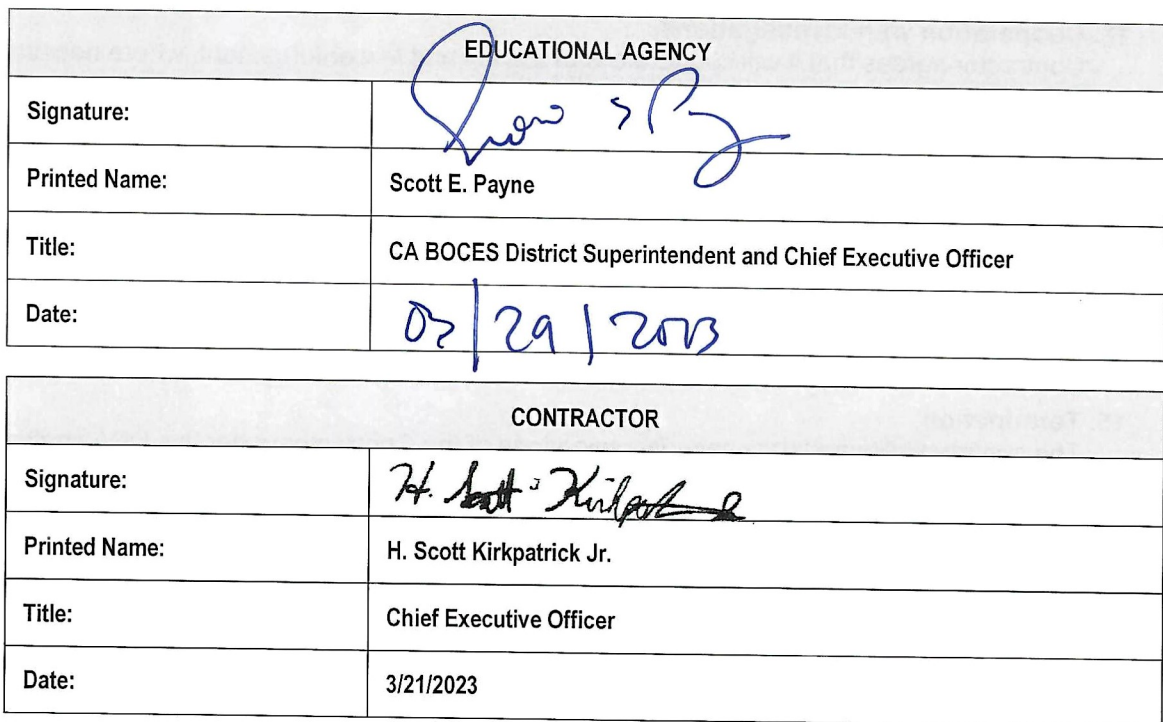 EDUCATIONAL AGENCY
Signature:
Printed Name: Scott E. Payne
Title: CA BOCES District Superintendent and Chief Executive Officer
Date: 03/29/2023
CONTRACTOR
Signature: H. Scott Kirkpatrick
Printed Name: H. Scott Kirkpatrick Jr.
Title: Chief Executive Officer
Date: 3/21/2023
15. Termination